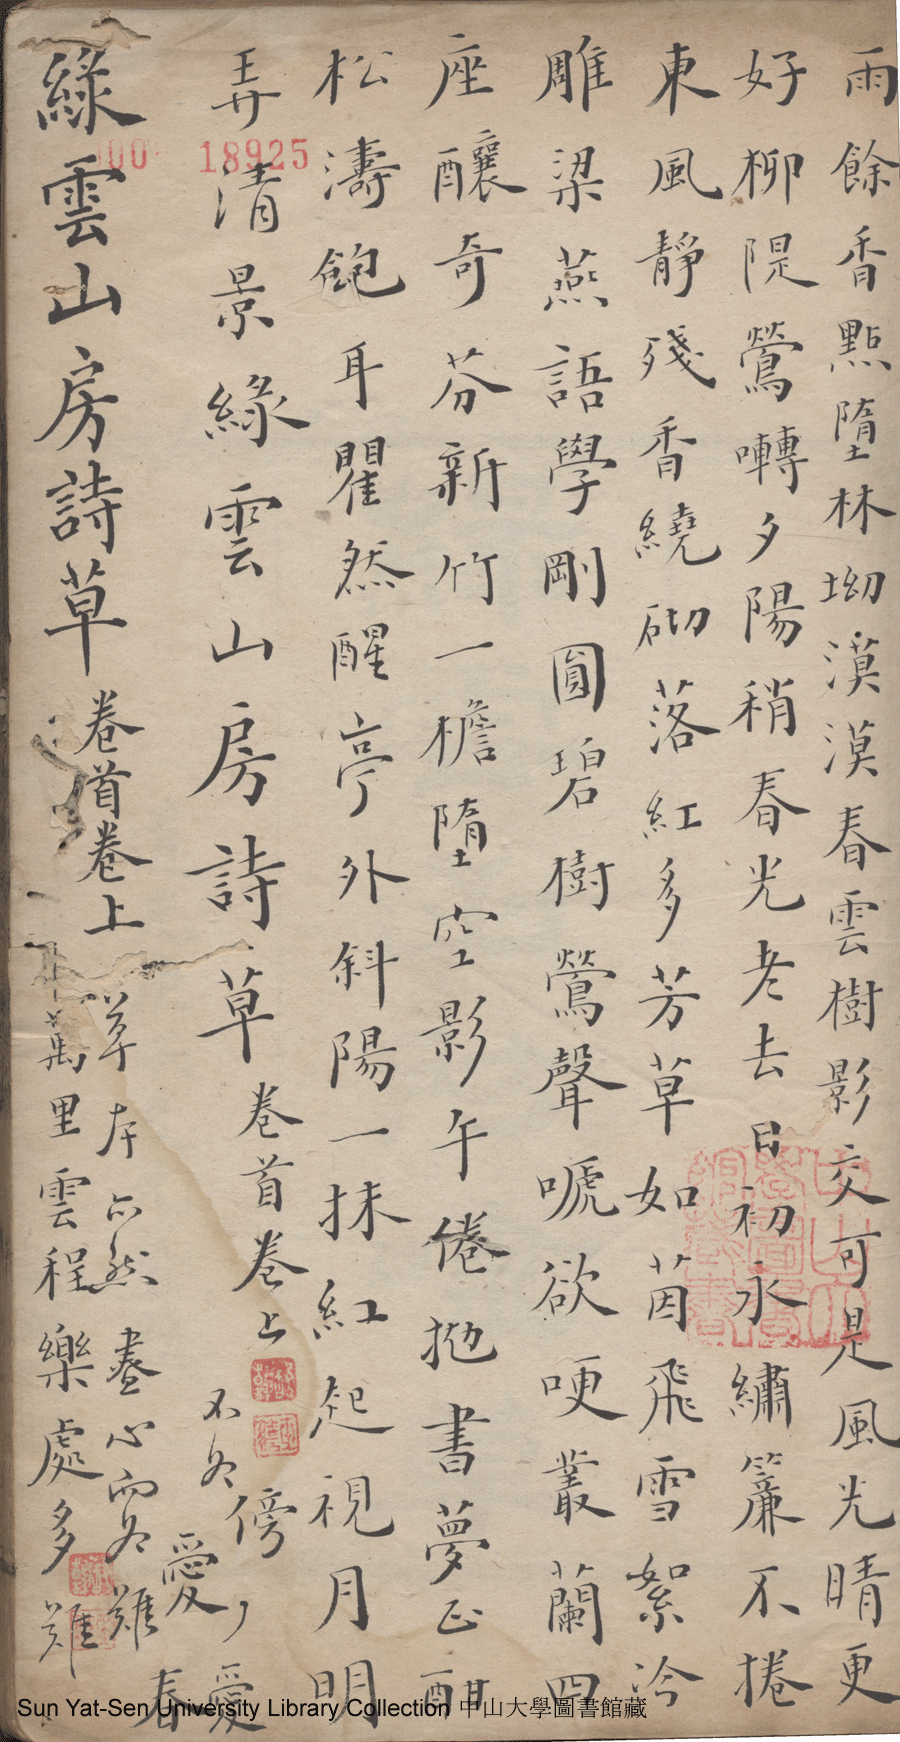 雨餘香點墮林坳漠漠春雲樹影交可是風光晴更
好柳隄鶯囀夕陽稍春光老去日初永繡簾不捲
東風靜殘香繞砌落紅多芳草如茵飛雪絮泠
雕梁燕語學剛圓碧樹鶯聲嗁欲哽叢蘭四
座釀奇芬新竹一檐墮空影午倦拋書夢正酣
松濤飽耳瞿然醒亭外斜陽一抹紅起視月明
弄清景緑雲山房詩草
卷首卷上
不各傍人愛
愛春
緑雲山房詩草
卷首卷上
草本亦然盡心而各難
萬里雲程樂處多難
18925
Sun Yat-Sen University Library Collection 中山大學圖書館藏